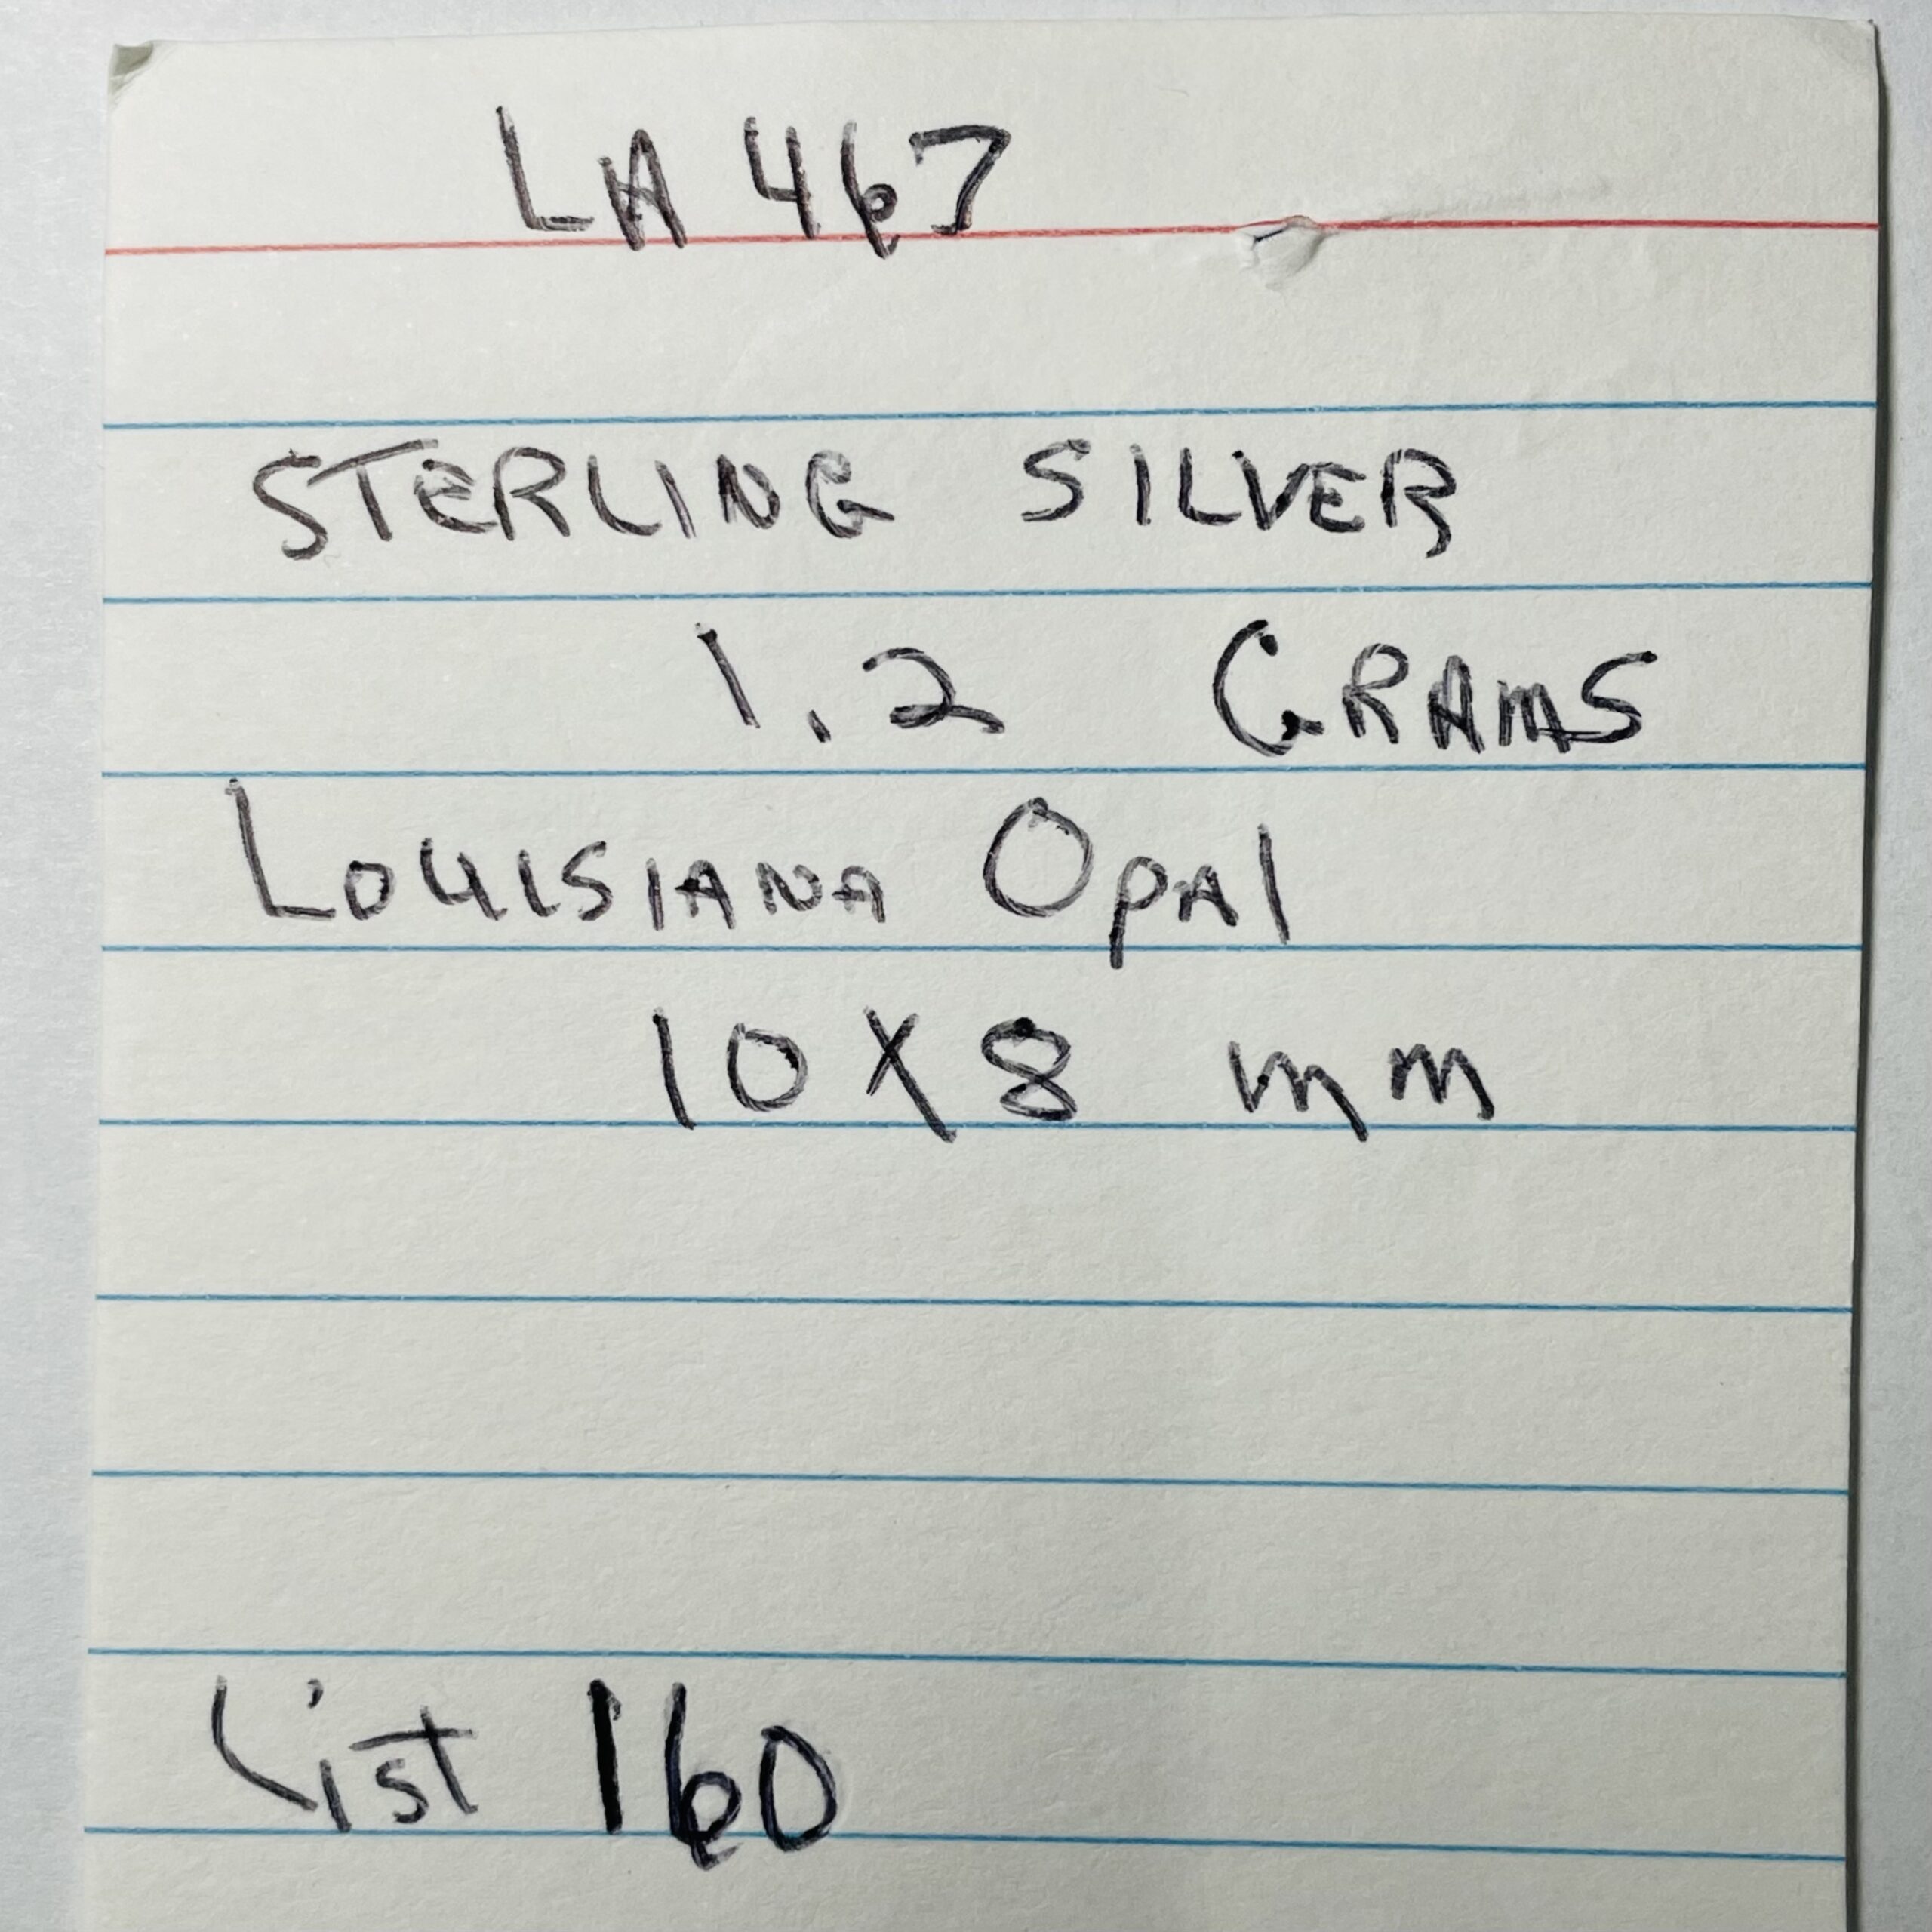 LA 467
STERLING SILVER
1.2 GRAMS
LOUISIANA OPAl
10 X 8 mm
List 160